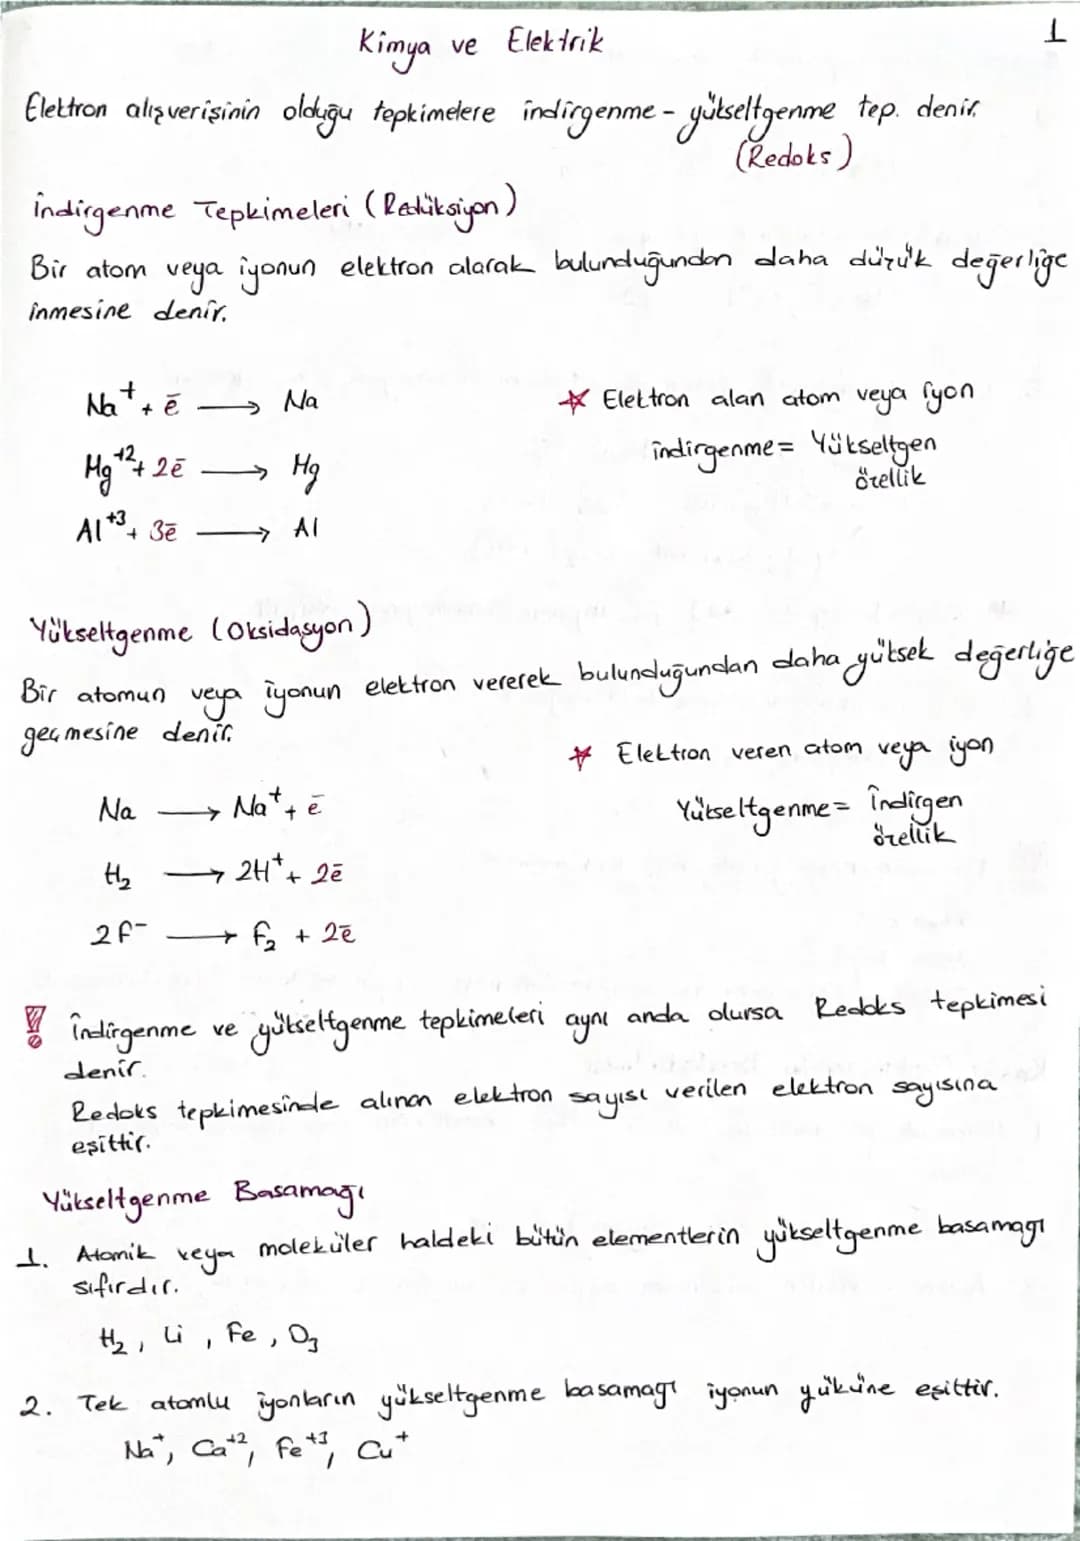 Kimya ve Elektrik
1
Elektron alışverişinin olduğu tepkimelere indirgenme - yükseltgenme tep. denir.
(Redoks)
İndirgenme Tepkimeleri (Redüksiyon)
Bir atom veya iyonun elektron alarak bulunduğundan daha düzük değerliğe
inmesine denir.
Na⁺ + ē → Na
★ Elektron alan atom veya iyon
Mg⁺² + 2ē → Mg
indirgenme = Yükseltgen
özellik
Al⁺³ + 3ē → Al
Yükseltgenme (Oksidasyon)
Bir atomun veya iyonun elektron vererek bulunduğundan daha yüksek değerliğe
geçmesine denir.
★ Elektron veren atom veya iyon
Na → Na⁺ + ē
Yükseltgenme = İndirgen
özellik
H₂ → 2H⁺ + 2ē
2f⁻ → f₂ + 2ē
! İndirgenme ve yükseltgenme tepkimeleri aynı anda olursa Redoks tepkimesi
denir.
Redoks tepkimesinde alınan elektron sayısı verilen elektron sayısına
eşittir.
Yükseltgenme Basamağı
1. Atomik veya moleküler haldeki bütün elementlerin yükseltgenme basamagı
sıfırdır.
H₂, Li, Fe, O₃
2. Tek atomlu iyonların yükseltgenme basamagı iyonun yüküne eşittir.
Na⁺, Ca⁺², Fe⁺³, Cu⁺